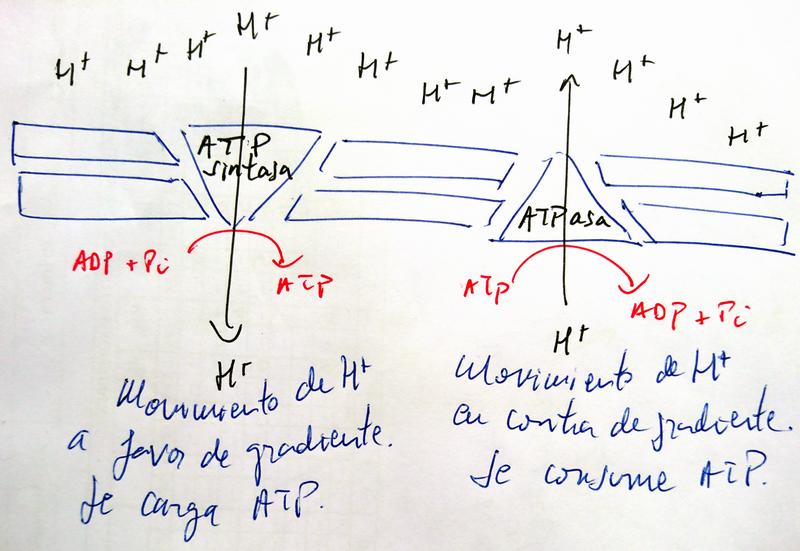 H+ H+ H+ H+ H+ H+ H+ H+ H+ H+ H+ H+
ATP
sintasa
ATPasa
ADP + Pi
ATP
ATP
ADP + Pi
H+
H+
Movimiento de H+
a favor de gradiente.
Se carga ATP.
Movimiento de H+
en contra de gradiente.
Se consume ATP.